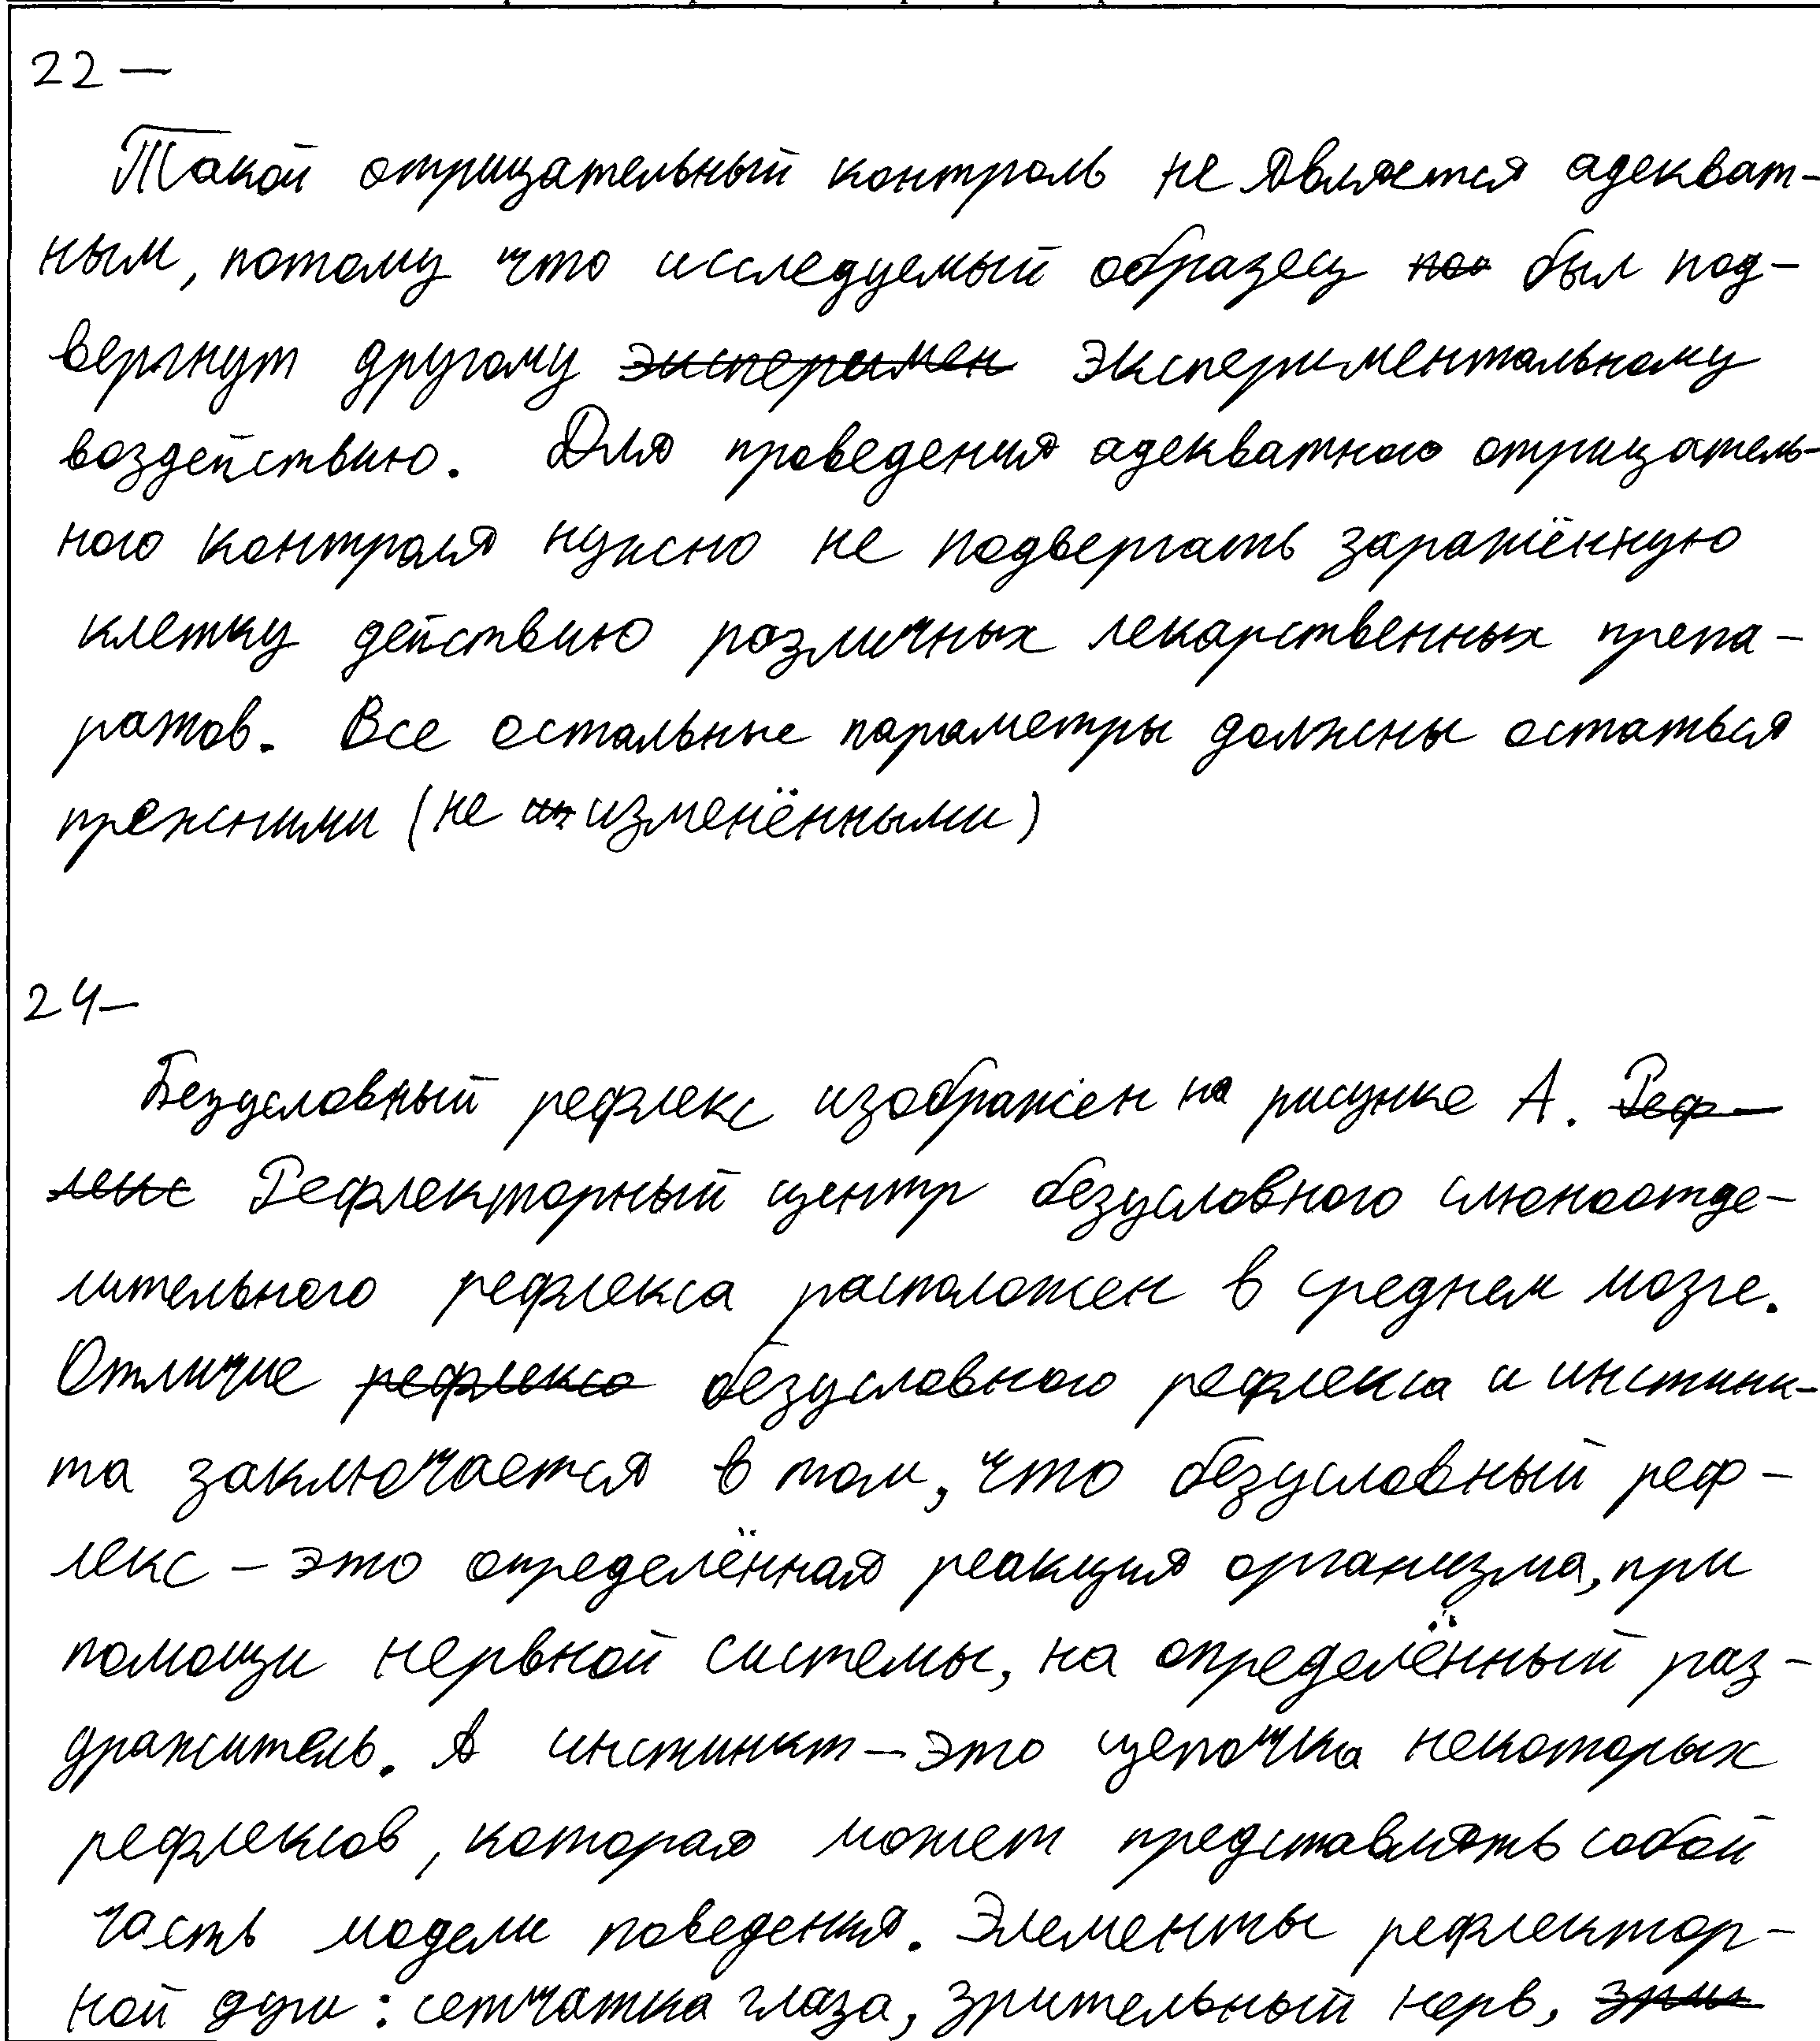 22 —
Такой отрицательный контроль не является адекват-
ным, потому что исследуемый образец был под-
вергнут другому ~~эксперимен~~ экспериментальному
воздействию. Для проведения адекватного отрицатель-
ного контроля нужно не подвергать заражённую
клетку действию различных лекарственных препа-
ратов. Все остальные параметры должны остаться
прежними (не изменёнными)
24—
Безусловный рефлекс изображен на рисунке А. ~~Реф-~~
~~лекс~~ Рефлекторный центр безусловного слюноотде-
лительного рефлекса расположен в среднем мозге.
Отличие ~~рефлекса~~ безусловного рефлекса и инстинк-
та заключается в том, что безусловный реф-
лекс - это определённая реакция организма, при
помощи нервной системы, на определённый раз-
дражитель. А инстинкт - это цепочка некоторых
рефлексов, которая может представлять собой
часть модели поведения. Элементы рефлектор-
ной дуги: сетчатка глаза, зрительный нерв, ~~зри~~